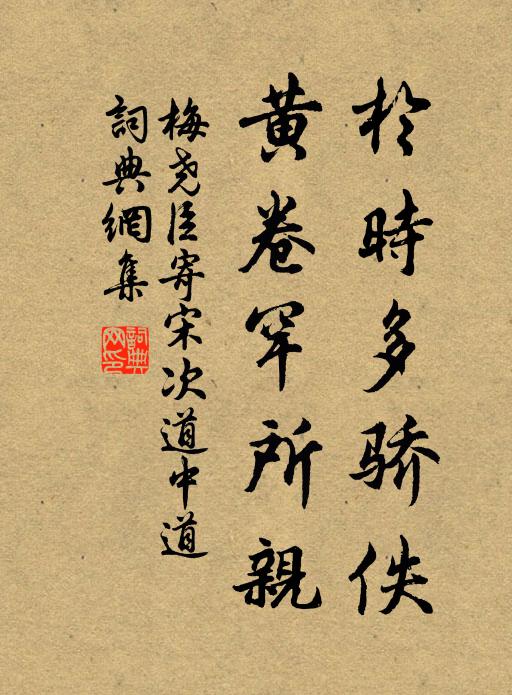 於時多骄佚
黄卷罕所親
梅尧臣寄宋次道中道
詞典網集
詞典网印